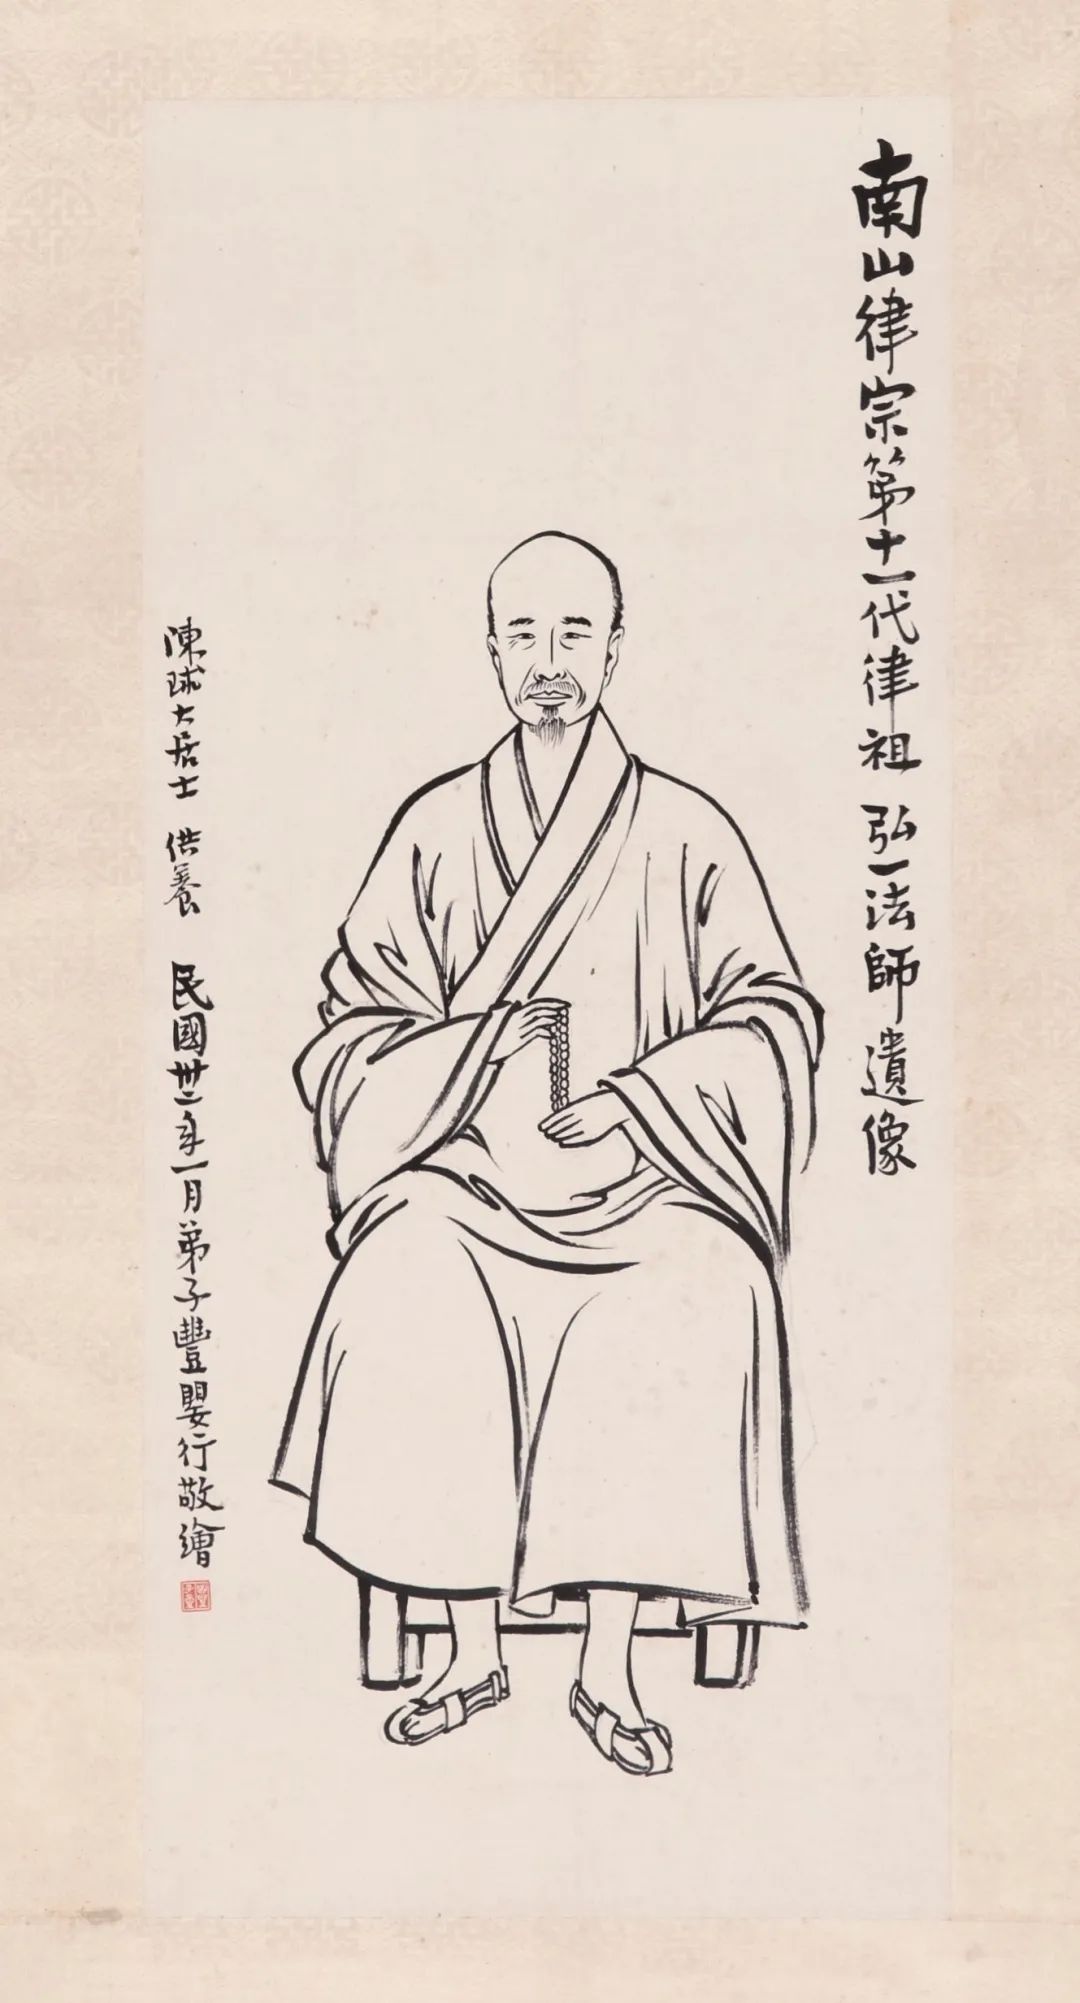 南山律宗第十一代律祖 弘一法師遺像
陳球大居士 供養 民國卅二年一月弟子豐嬰行敬繪